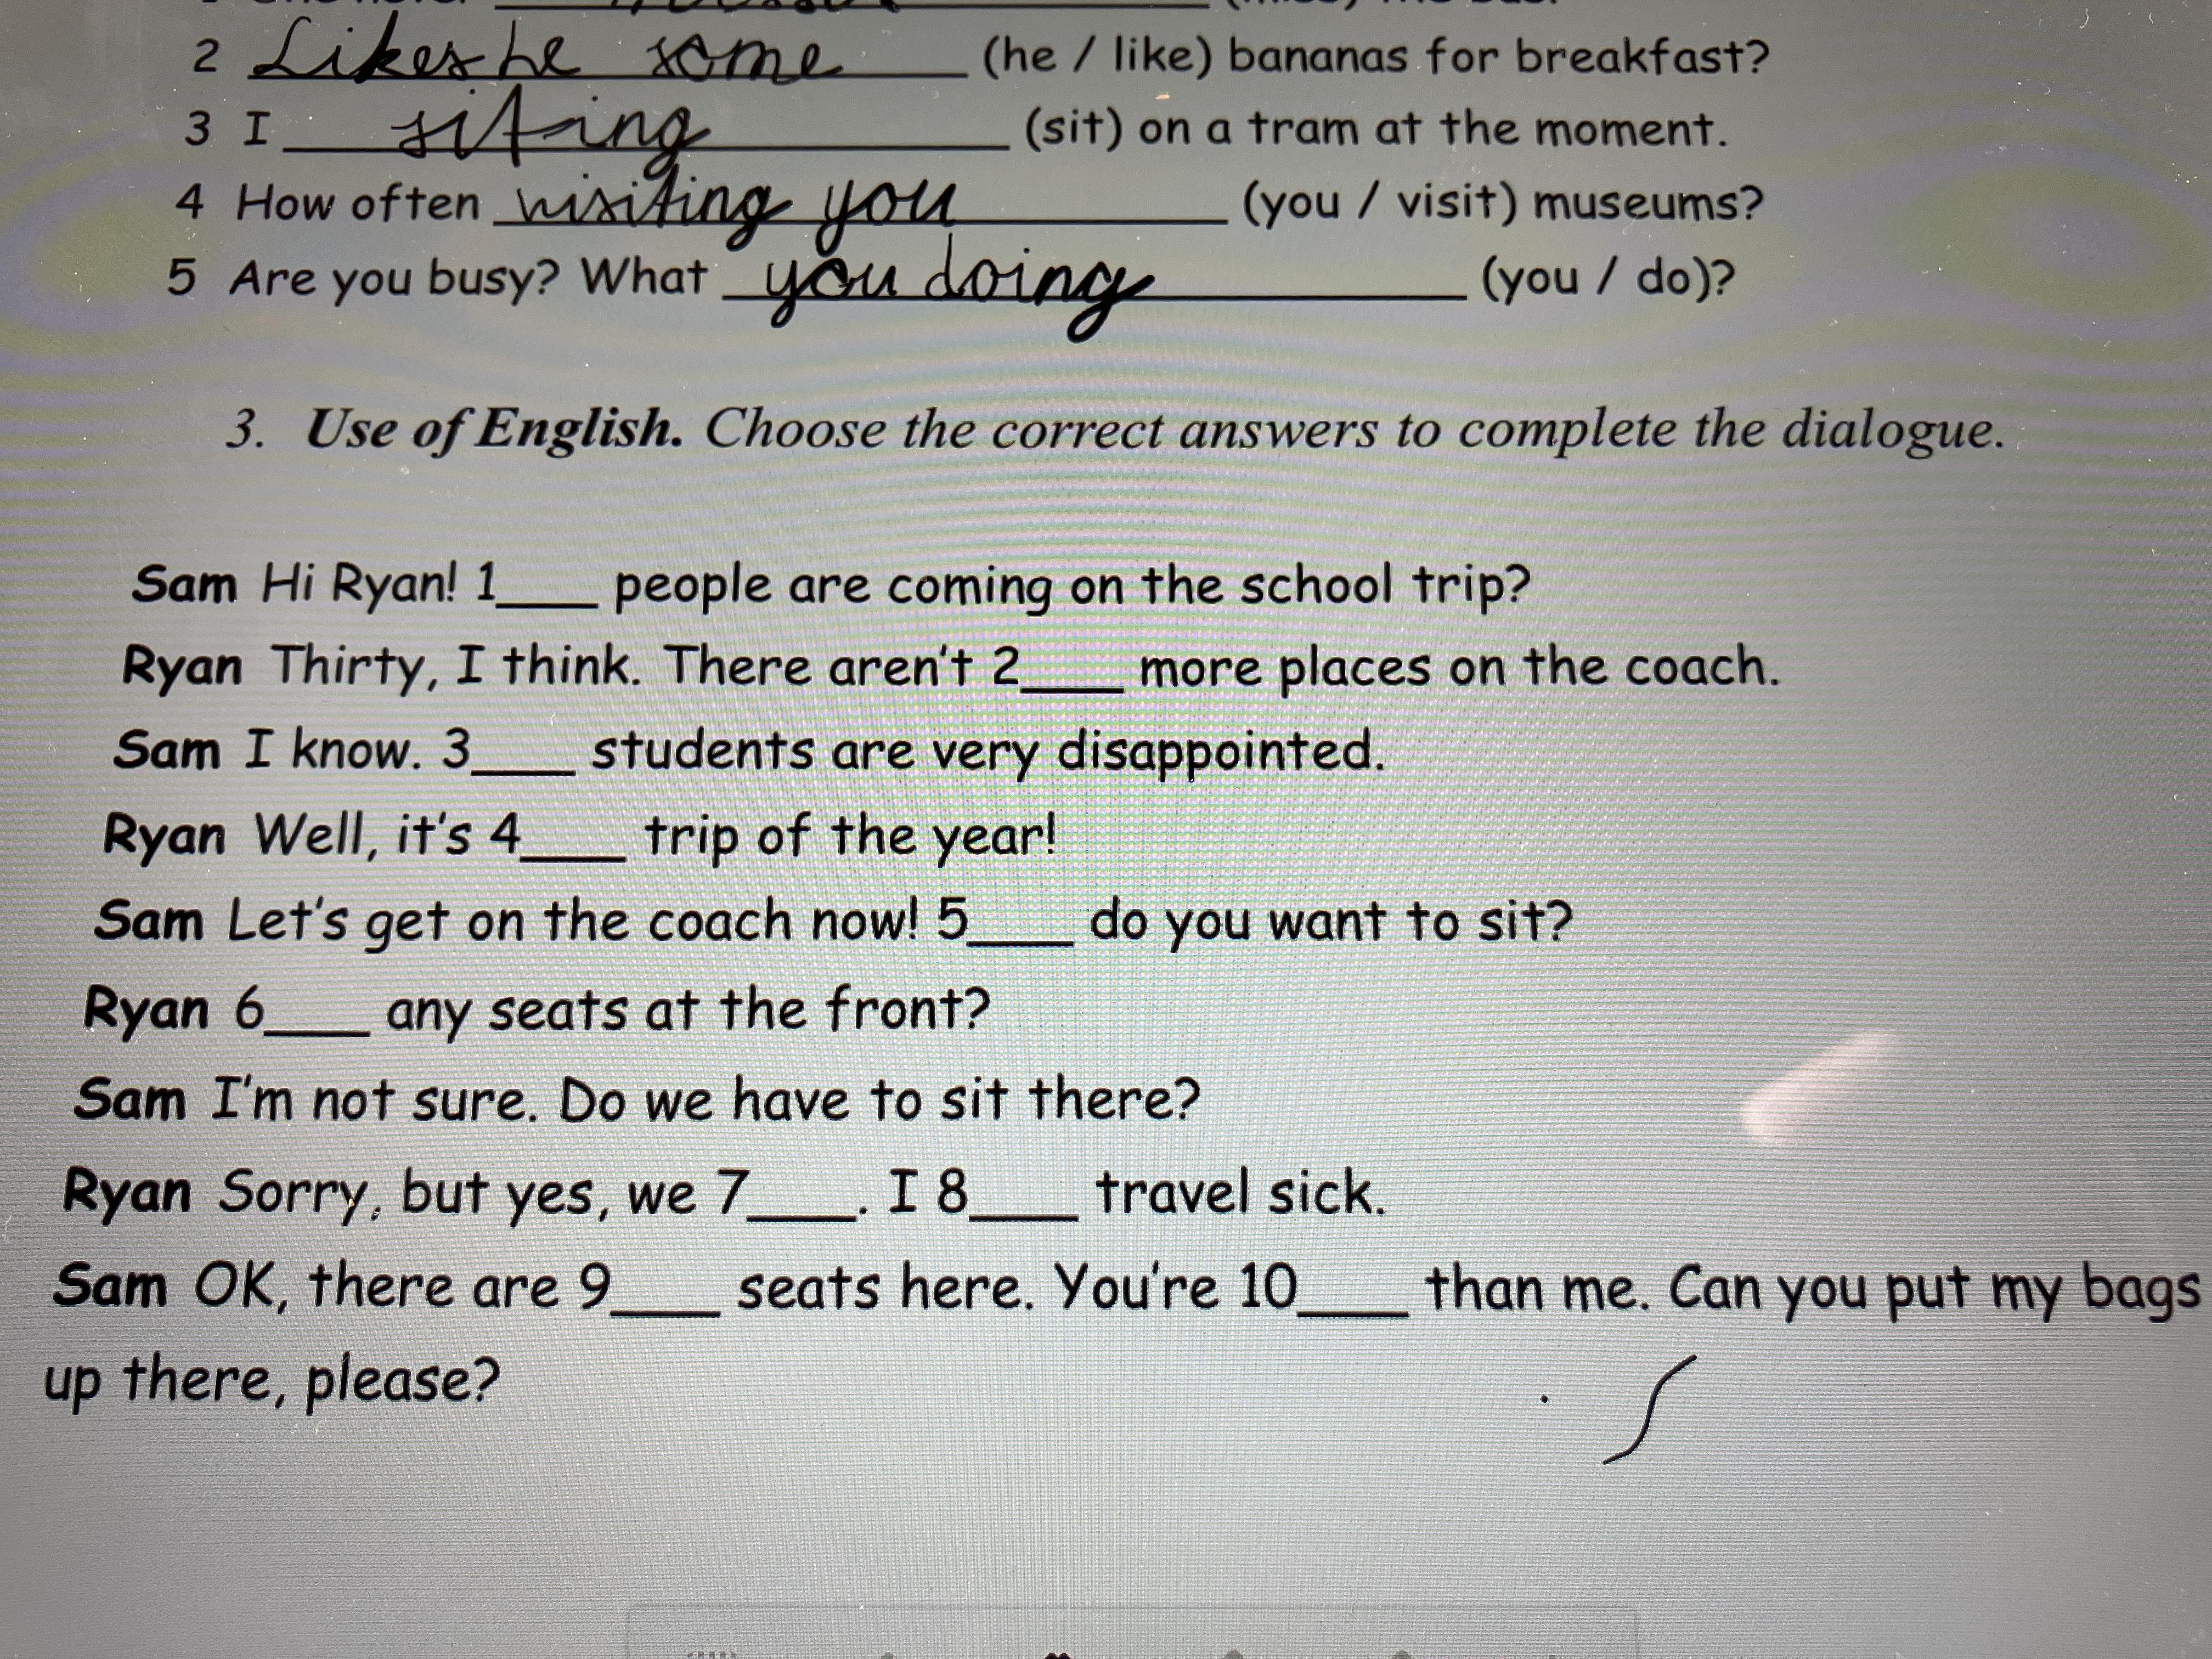 2 Likes he some (he / like) bananas for breakfast?
3 I siting (sit) on a tram at the moment.
4 How often visiting you (you / visit) museums?
5 Are you busy? What you doing (you / do)?
3. Use of English. Choose the correct answers to complete the dialogue.
Sam Hi Ryan! 1___ people are coming on the school trip?
Ryan Thirty, I think. There aren't 2___ more places on the coach.
Sam I know. 3___ students are very disappointed.
Ryan Well, it's 4___ trip of the year!
Sam Let's get on the coach now! 5___ do you want to sit?
Ryan 6___ any seats at the front?
Sam I'm not sure. Do we have to sit there?
Ryan Sorry, but yes, we 7___. I 8___ travel sick.
Sam OK, there are 9___ seats here. You're 10___ than me. Can you put my bags
up there, please?